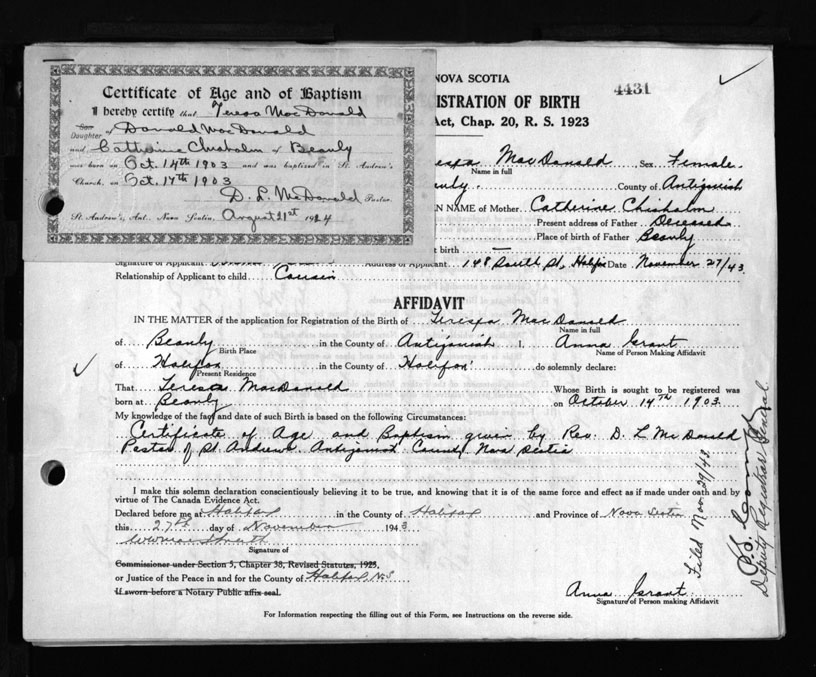 Certificate of Age and of Baptism
I hereby certify that Teresa MacDonald
Son
Daughter of Donald MacDonald
and Catherine Chisholm of Beauly
was born in Oct. 14th 1903 and was baptized in St. Andrew's
Church, on Oct. 17th 1903
D. L. McDonald Pastor.
St. Andrew's, Ant., Nova Scotia, August 21st 1924
NOVA SCOTIA
4431
ISTRATION OF BIRTH
Act, Chap. 20, R. S. 1923
MacDonald Sex Female
Name in full
County of Antigonish
N NAME of Mother Catherine Chisholm
Present address of Father Deceased
Place of birth of Father Beauly
t birth —
Signature of Applicant Address of Applicant 148 South St, Halifax Date November 27/43
Relationship of Applicant to child Cousin
AFFIDAVIT
IN THE MATTER of the application for Registration of the Birth of Teresa MacDonald
Name in full
of Beauly in the County of Antigonish I, Anna Grant
Birth Place Name of Person Making Affidavit
of Halifax in the County of Halifax do solemnly declare:
Present Residence
That Teresa MacDonald Whose Birth is sought to be registered was
born at Beauly on October 14TH 1903
My knowledge of the fact and date of such Birth is based on the following Circumstances:
Certificate of Age and Baptism given by Rev. D. L. McDonald
Pastor of St. Andrews. Antigonish County Nova Scotia
I make this solemn declaration conscientiously believing it to be true, and knowing that it is of the same force and effect as if made under oath and by
virtue of The Canada Evidence Act.
Declared before me at Halifax in the County of Halifax and Province of Nova Scotia
this 27th day of November 1943
Signature of
Commissioner under Section 5, Chapter 38, Revised Statutes, 1923,
or Justice of the Peace in and for the County of Halifax, N.S
If sworn before a Notary Public affix seal.
Anna Grant
Signature of Person making Affidavit
For Information respecting the filling out of this Form, see Instructions on the reverse side.
Filed Nov. 29/43
Deputy Registrar General